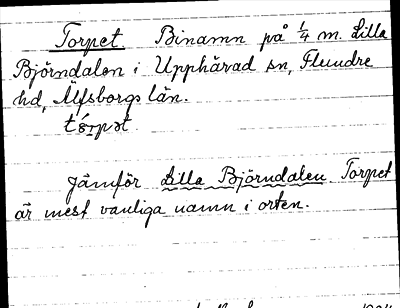 Torpet Binamn på 1/4 m. Lilla
Björndalen i Upphärad sn, Flundre
hd, Älfsborgs län.
Jämför Lilla Björndalen. Torpet
är mest vanliga namn i orten.